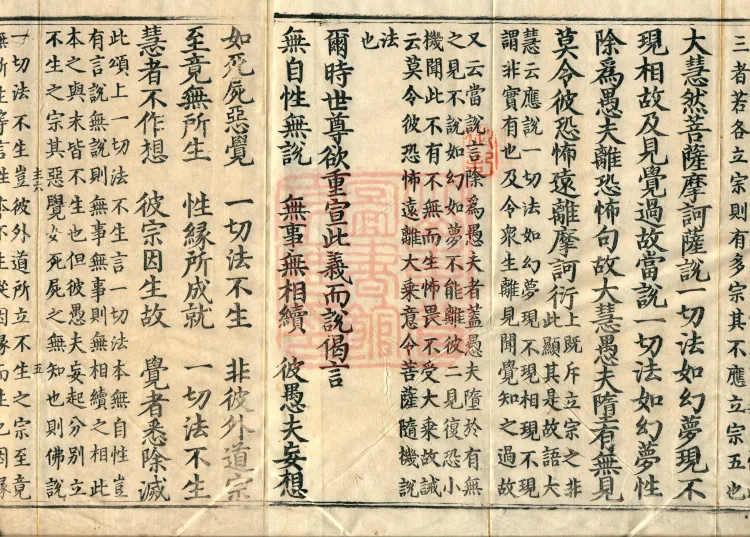 三者若各立宗則有多宗其不應立宗五也
大慧然菩薩摩訶薩說一切法如幻夢現不
現相故及見覺過故當說一切法如幻夢性
除為愚夫離恐怖句故大慧愚夫墮有無見
莫令彼恐怖遠離摩訶衍上既斥立宗之非
此顯其是故語大
慧云應說一切法如幻夢現不現相現不現
謂非實有也及令眾生離見聞覺知之過故
又云當說言除為愚夫者蓋愚夫墮於有無
之見不說如幻如夢不能離彼二見復恐小
機聞此不有不無而生怖畏不受大乘故誡
云莫令彼恐怖遠離大乘意令菩薩隨機說
法
也
爾時世尊欲重宣此義而說偈言
無自性無說 無事無相續 彼愚夫妄想
如死屍惡覺 一切法不生 非彼外道宗
至竟無所生 性緣所成就 一切法不生
慧者不作想 彼宗因生故 覺者悉除滅
此頌上一切法不生言一切法本無自性豈
有言說無說則無事無事則無相續之相此
本之與末皆不生也但彼愚夫妄起分別立
不生之宗其惡覺如死屍之無知也則佛說
五
一切法不生豈彼外道所立不生之宗至竟
無所生等言性本不生從因緣而生也因緣